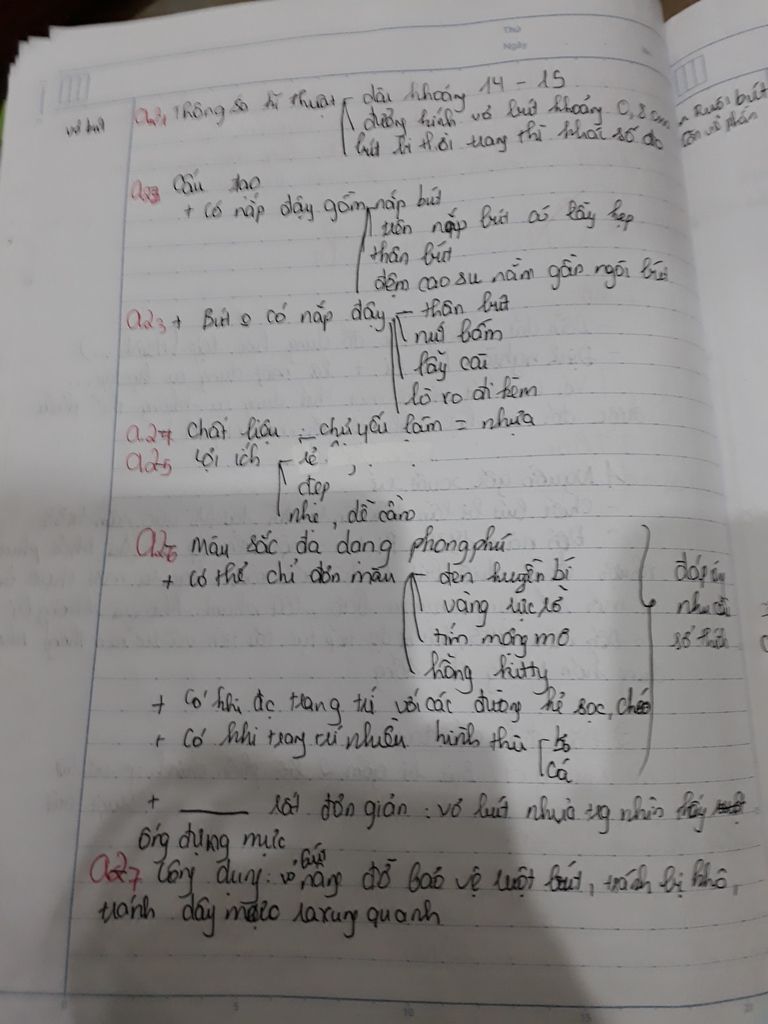 Thứ
Ngày
vỏ bút
a.21 Thông số kĩ thuật dài khoảng 14 - 15
đường kính vỏ bút khoảng 0,8 cm
bút bi thời trang thì khác số đo
a.22 Cấu tạo
+ có nắp đậy gồm nắp bút
trên nắp bút có lẫy kẹp
thân bút
đệm cao su nằm gần ngòi bút
a.23 + Bút o có nắp đậy thân bút
nút bấm
lẫy cài
lò xo đi kèm
a.24 chất liệu - chủ yếu làm = nhựa
a.25 Lợi ích rẻ
đẹp
nhẹ, dễ cầm
a.26 Màu sắc đa dạng phong phú
+ có thể chỉ đơn màu đen huyền bí
vàng rực rỡ
tím mộng mơ
hồng kitty
đáp ứ
nhu cầu
sở thích
+ Có khi đc trang trí với các đường kẻ sọc, chéo
+ Có khi trang trí nhiều hình thù
Cá
+ rất đơn giản : vỏ bút nhựa tg nhìn thấy
ống đựng mực
a.27 Công dụng: vỏ bút đỡ bảo vệ ruột bút, tránh bị khô,
tránh dây mực ra xung quanh
Ruột bút